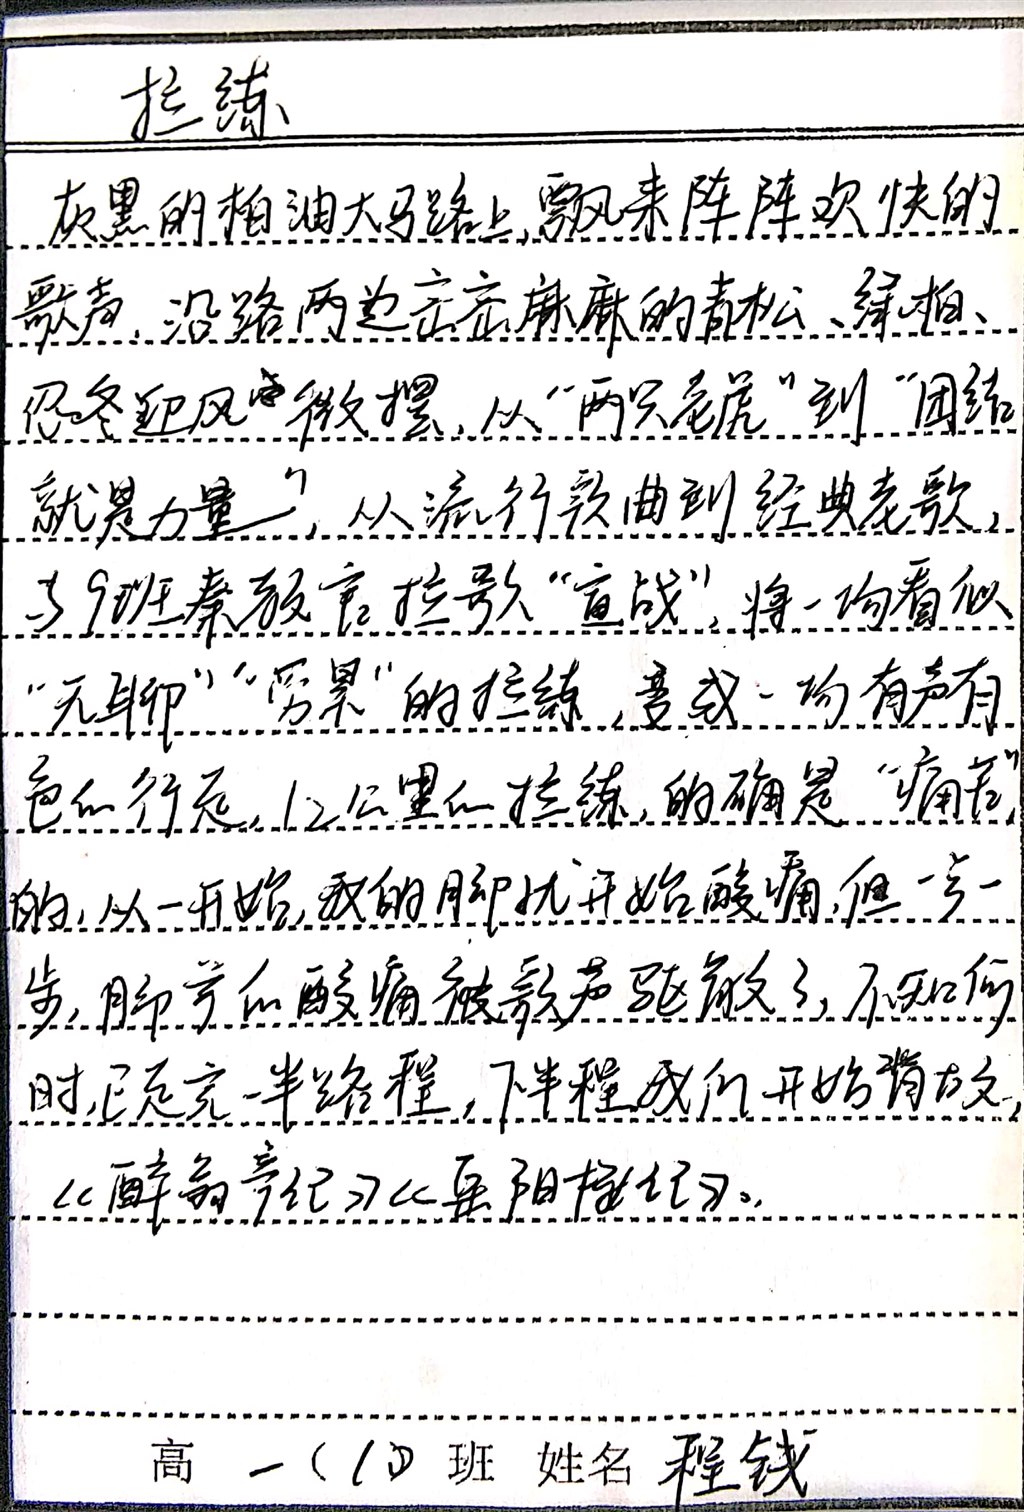 拉练
灰黑的柏油大马路上,飘来阵阵欢快的
歌声,沿路两边密密麻麻的青松、绿柏、
忍冬迎风微摆,从“两只老虎”到“团结
就是力量”,从流行歌曲到经典老歌,
与9班秦教官拉歌“宣战”,将一场看似
“无聊”“劳累”的拉练,变成一场有声有
色的行走,12公里的拉练,的确是“痛苦”
的,从一开始,我的脚就开始酸痛,但一步一
步,脚下的酸痛被歌声驱散了,不知何
时,已走完一半路程,下半程我们开始背古文,
《醉翁亭记》《岳阳楼记》。
高一(1)班 姓名 程钱